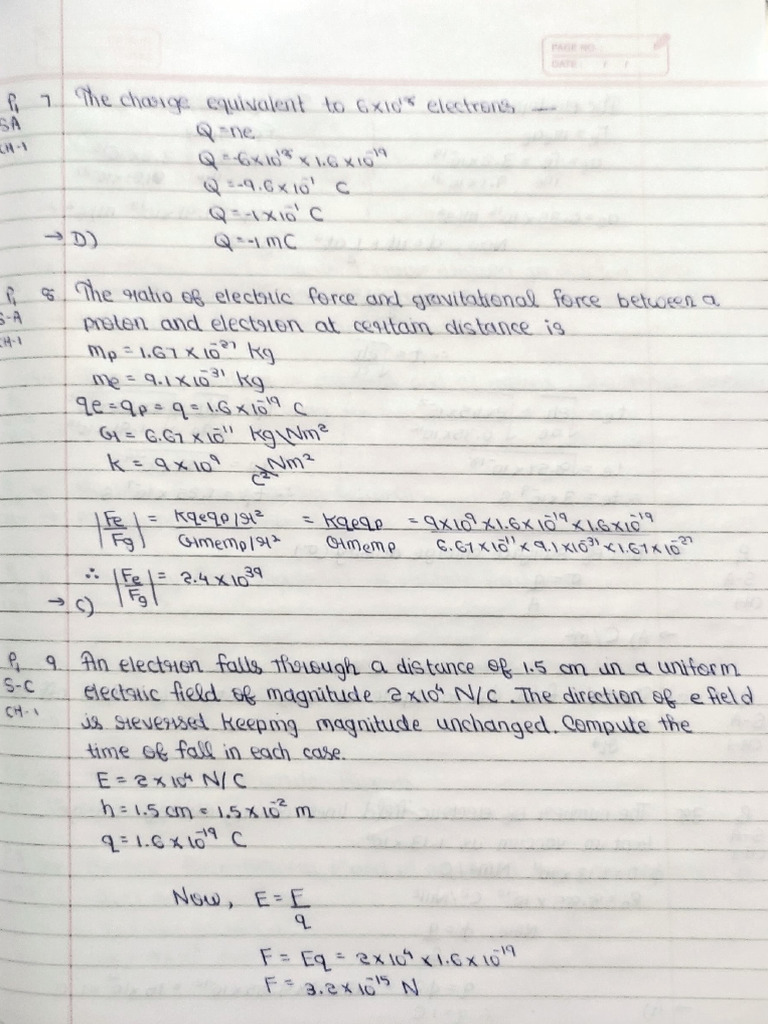 PAGE NO.
DATE: / /
P1 7 The charge equivalent to 6×10¹⁸ electrons —
SA Q=ne
CH-1 Q=-6×10¹⁸×1.6×10⁻¹⁹
Q=-9.6×10⁻¹ C
Q=-1×10⁻¹ C
→ D) Q=-1 mC
P1 8 The ratio of electric force and gravitational force between a
S-A proton and electron at certain distance is
CH-1 mp = 1.67 × 10⁻²⁷ kg
me = 9.1 × 10⁻³¹ kg
qe = qp = q = 1.6 × 10⁻¹⁹ C
G = 6.67 × 10⁻¹¹ kg\Nm²
k = 9 × 10⁹ C²\Nm²
|Fe/Fg| = Kqeqp/r² / Gmemp/r² = Kqeqp / Gmemp = 9×10⁹×1.6×10⁻¹⁹×1.6×10⁻¹⁹ / 6.67×10⁻¹¹×9.1×10⁻³¹×1.67×10⁻²⁷
∴ |Fe/Fg| = 2.4×10³⁹
→ C)
P1 9 An electron falls through a distance of 1.5 cm in a uniform
S-C electric field of magnitude 2×10⁴ N/C. The direction of e field
CH-1 is reversed keeping magnitude unchanged. Compute the
time of fall in each case.
E = 2×10⁴ N/C
h = 1.5 cm = 1.5×10⁻² m
q = 1.6×10⁻¹⁹ C
Now, E = F/q
F = Eq = 2×10⁴×1.6×10⁻¹⁹
F = 3.2×10⁻¹⁵ N